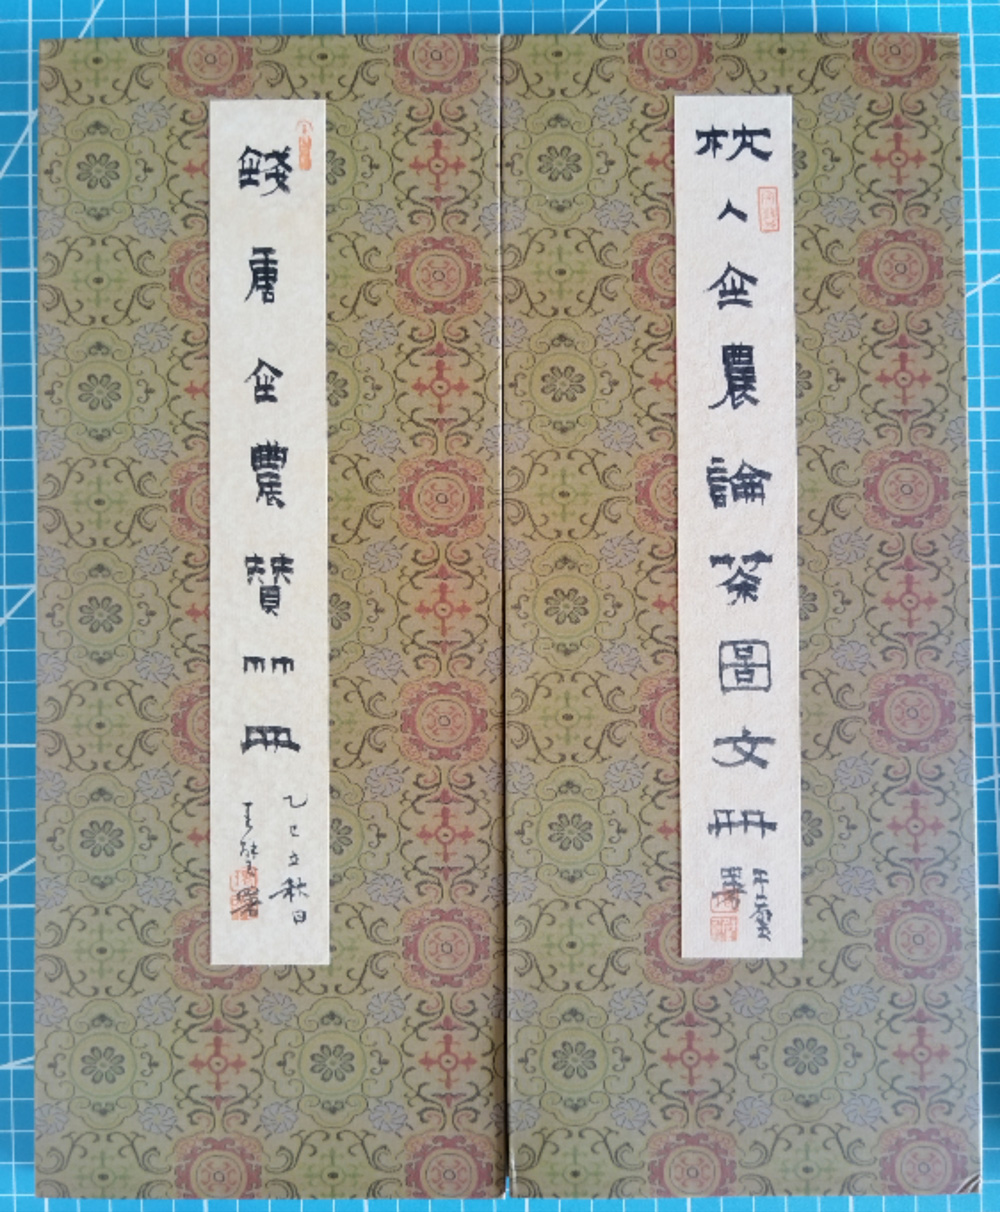 杭人金農論茶圖文冊
錢唐金農贊竹冊
乙巳立秋日
署